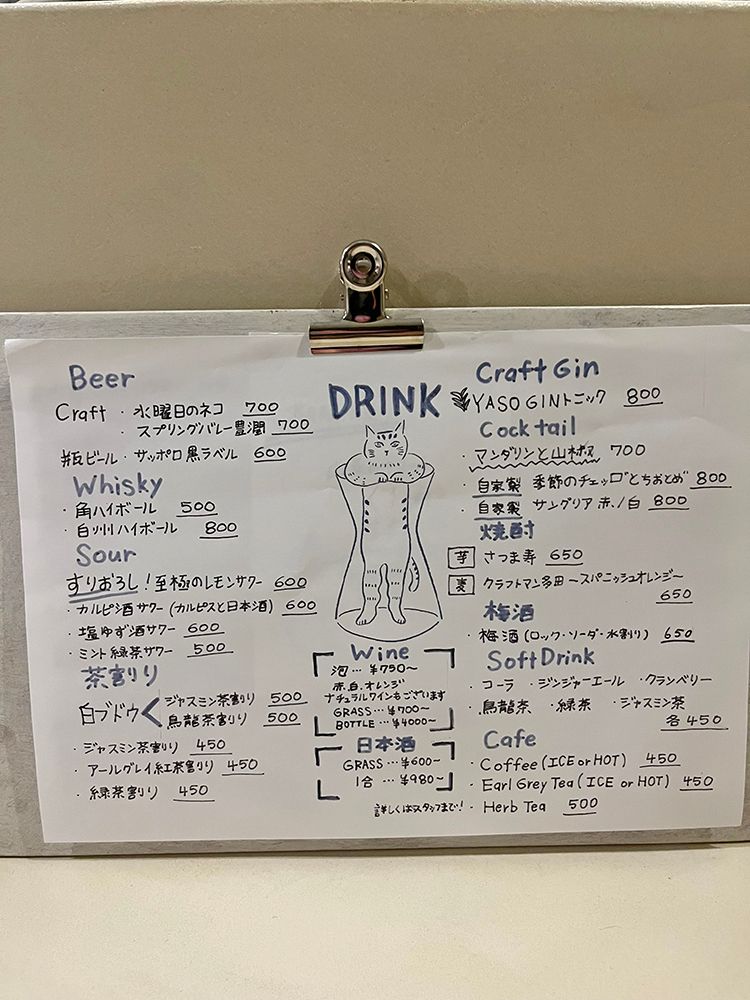 Beer
Craft ・水曜日のネコ 700
・スプリングバレー豊潤 700
瓶ビール・サッポロ黒ラベル 600
Whisky
・角ハイボール 500
・白州ハイボール 800
Sour
すりおろし!至極のレモンサワー 600
・カルピ酒サワー(カルピスと日本酒) 600
・塩ゆず酒サワー 600
・ミント緑茶サワー 500
茶割り
白ブドウく ジャスミン茶割り 500
烏龍茶割り 500
・ジャスミン茶割り 450
・アールグレイ紅茶割り 450
・緑茶割り 450
DRINK
Wine
泡…¥750~
赤.白.オレンジ
ナチュラルワインもございます
GRASS…¥700~
BOTTLE…¥4000~
日本酒
GRASS…¥600~
1合…¥980~
詳しくはスタッフまで!
Craft Gin
YASO GINトニック 800
Cocktail
・マンダリンと山椒 700
・自家製 季節のチェッロ"とちおとめ" 800
・自家製 サングリア 赤/白 800
焼酎
芋 さつま寿 650
麦 クラフトマン多田~スパニッシュオレンジ~
650
梅酒
・梅酒(ロック・ソーダ・水割り) 650
Soft Drink
・コーラ ・ジンジャーエール ・クランベリー
・烏龍茶 ・緑茶 ・ジャスミン茶
各450
Cafe
・Coffee (ICE or HOT) 450
・Earl Grey Tea (ICE or HOT) 450
・Herb Tea 500